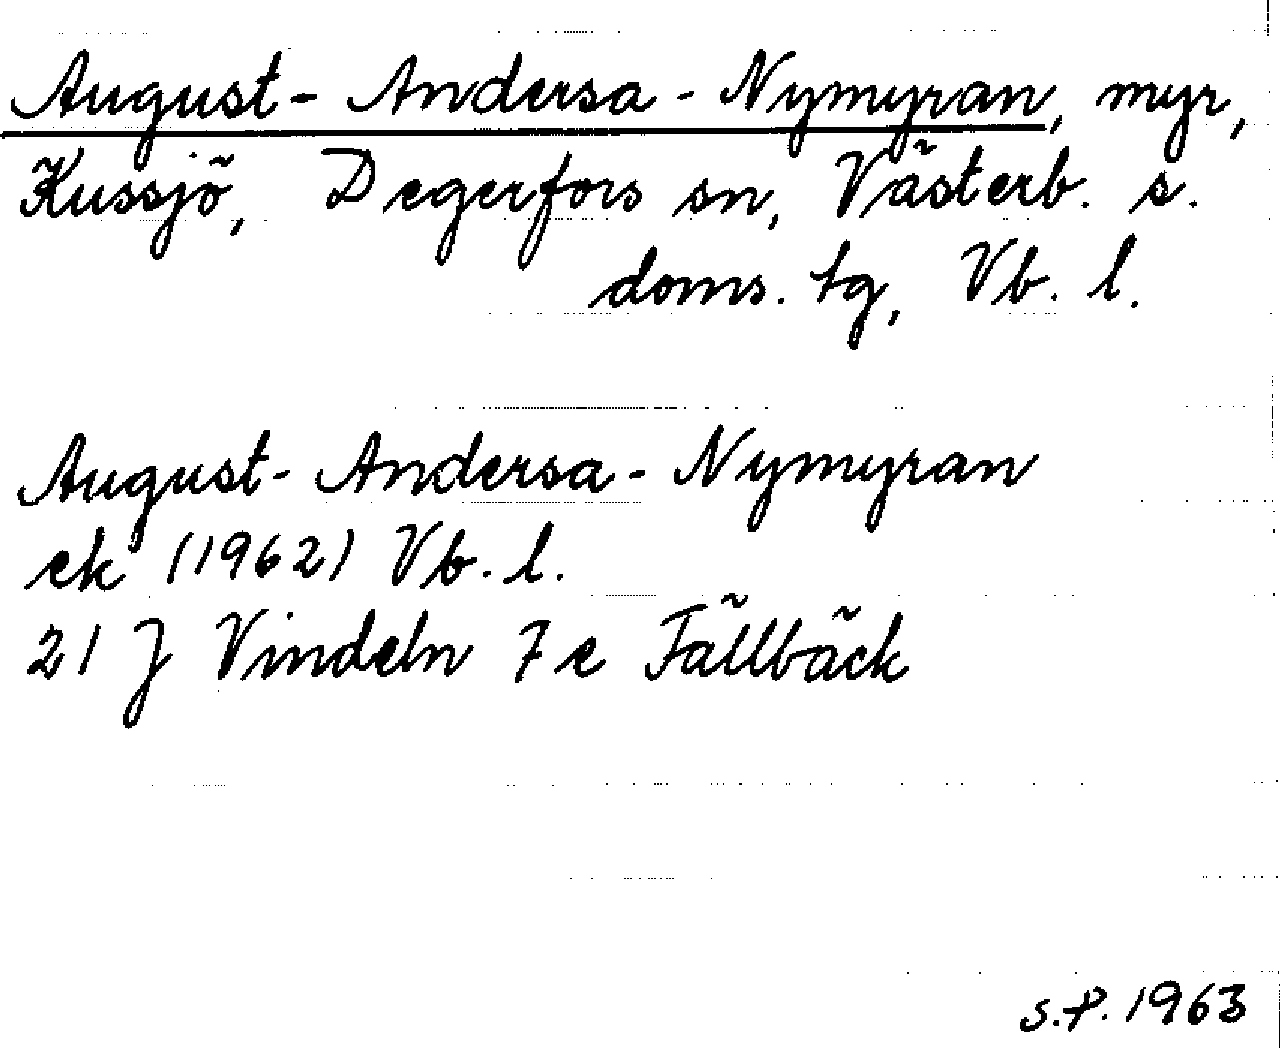 August-Andersa-Nymyran, myr,
Kussjö, Degerfors sn, Västerb. s.
doms. tg, Vb. l.
August-Andersa-Nymyran
ek (1962) Vb. l.
21 J Vindeln 7 e Fällbäck
S.P. 1963